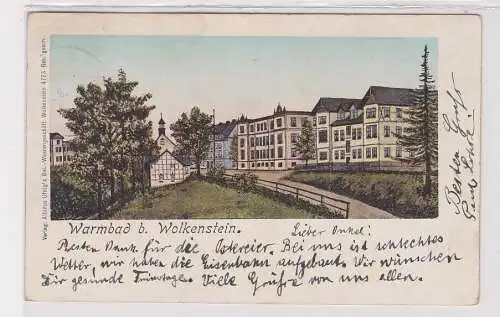 Warmbad b. Wolkenstein.
Lieber Onkel!
Besten Dank für die Ostereier. Bei uns ist schlechtes
Wetter, wir haben die Eisenbahn aufgebaut. Wir wünschen
Dir gesunde Feiertage. Viele Grüße von uns allen.
Besten Gruß
Verlag: Alfred